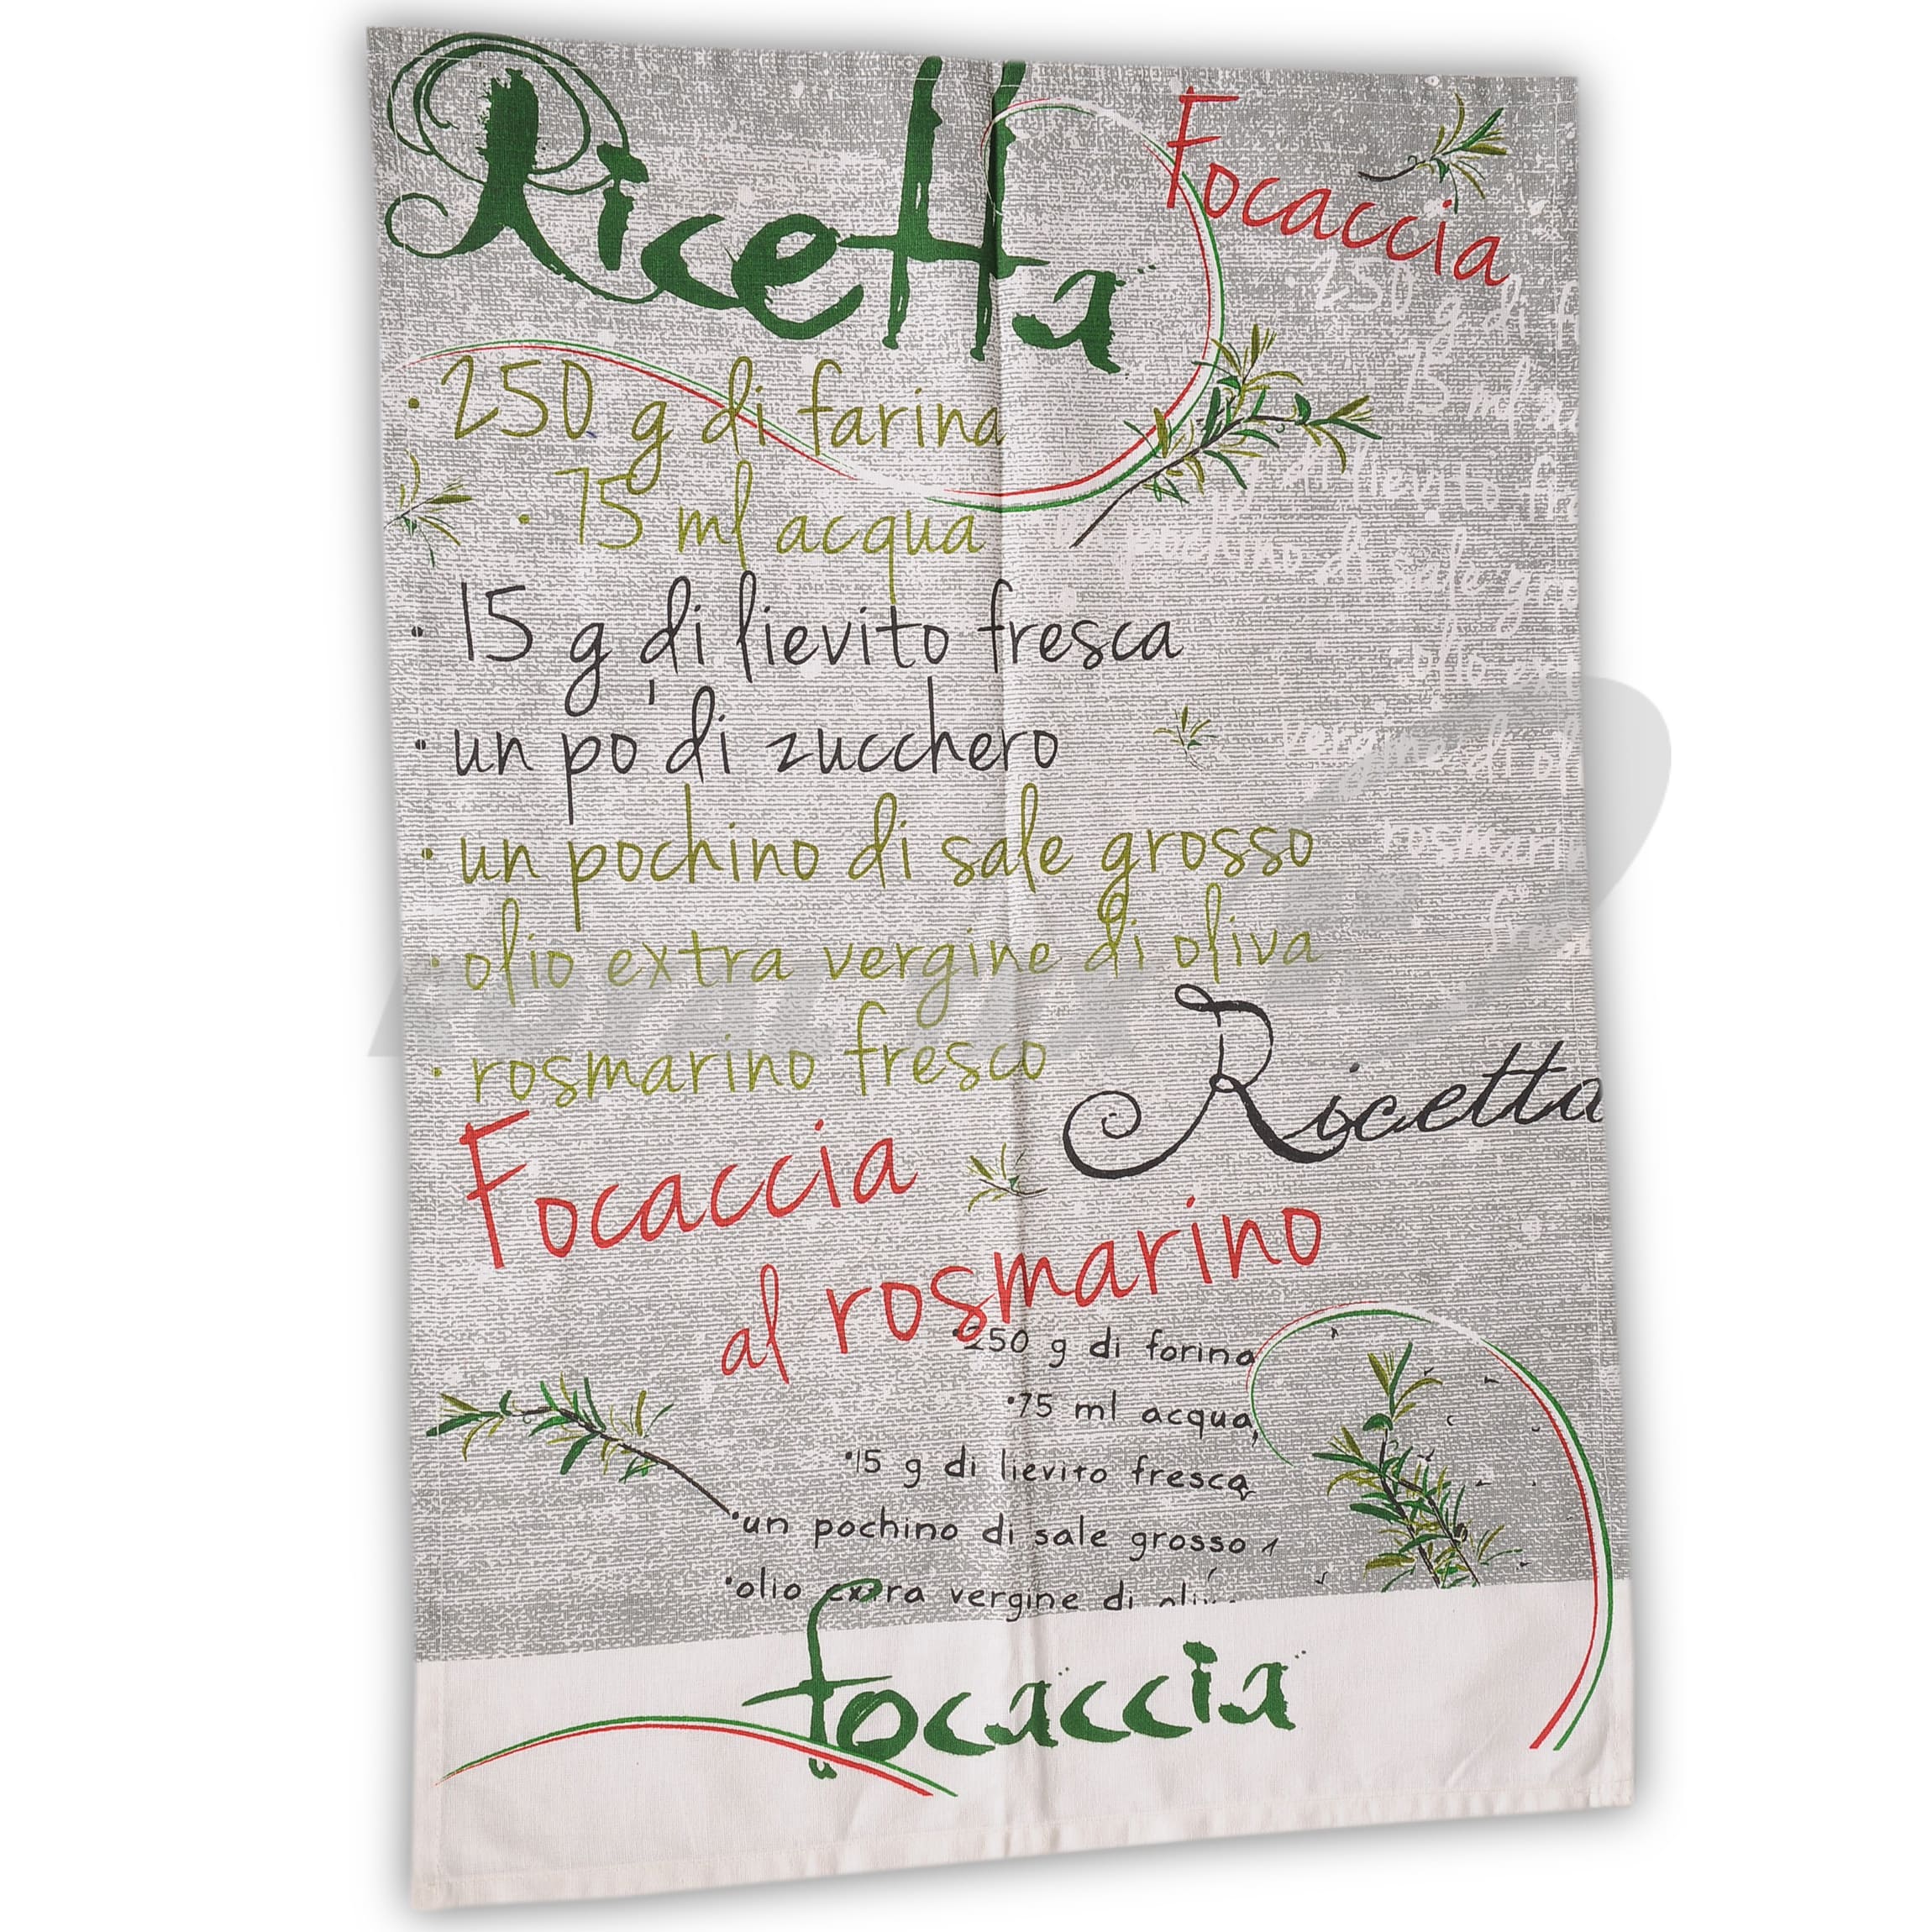 Ricetta
Focaccia
·250 g di
75 ml
·250 g di farina
·75 ml acqua
di lievito
pochino di sale
·15 g di lievito fresca
·olio
·un po' di zucchero
vergine di
·un pochino di sale grosso
·olio extra vergine di oliva
·rosmarino fresco
Ricetta
Focaccia
al rosmarino
·250 g di forina
·75 ml acqua
·15 g di lievito fresca
·un pochino di sale grosso
·olio extra vergine di
focaccia